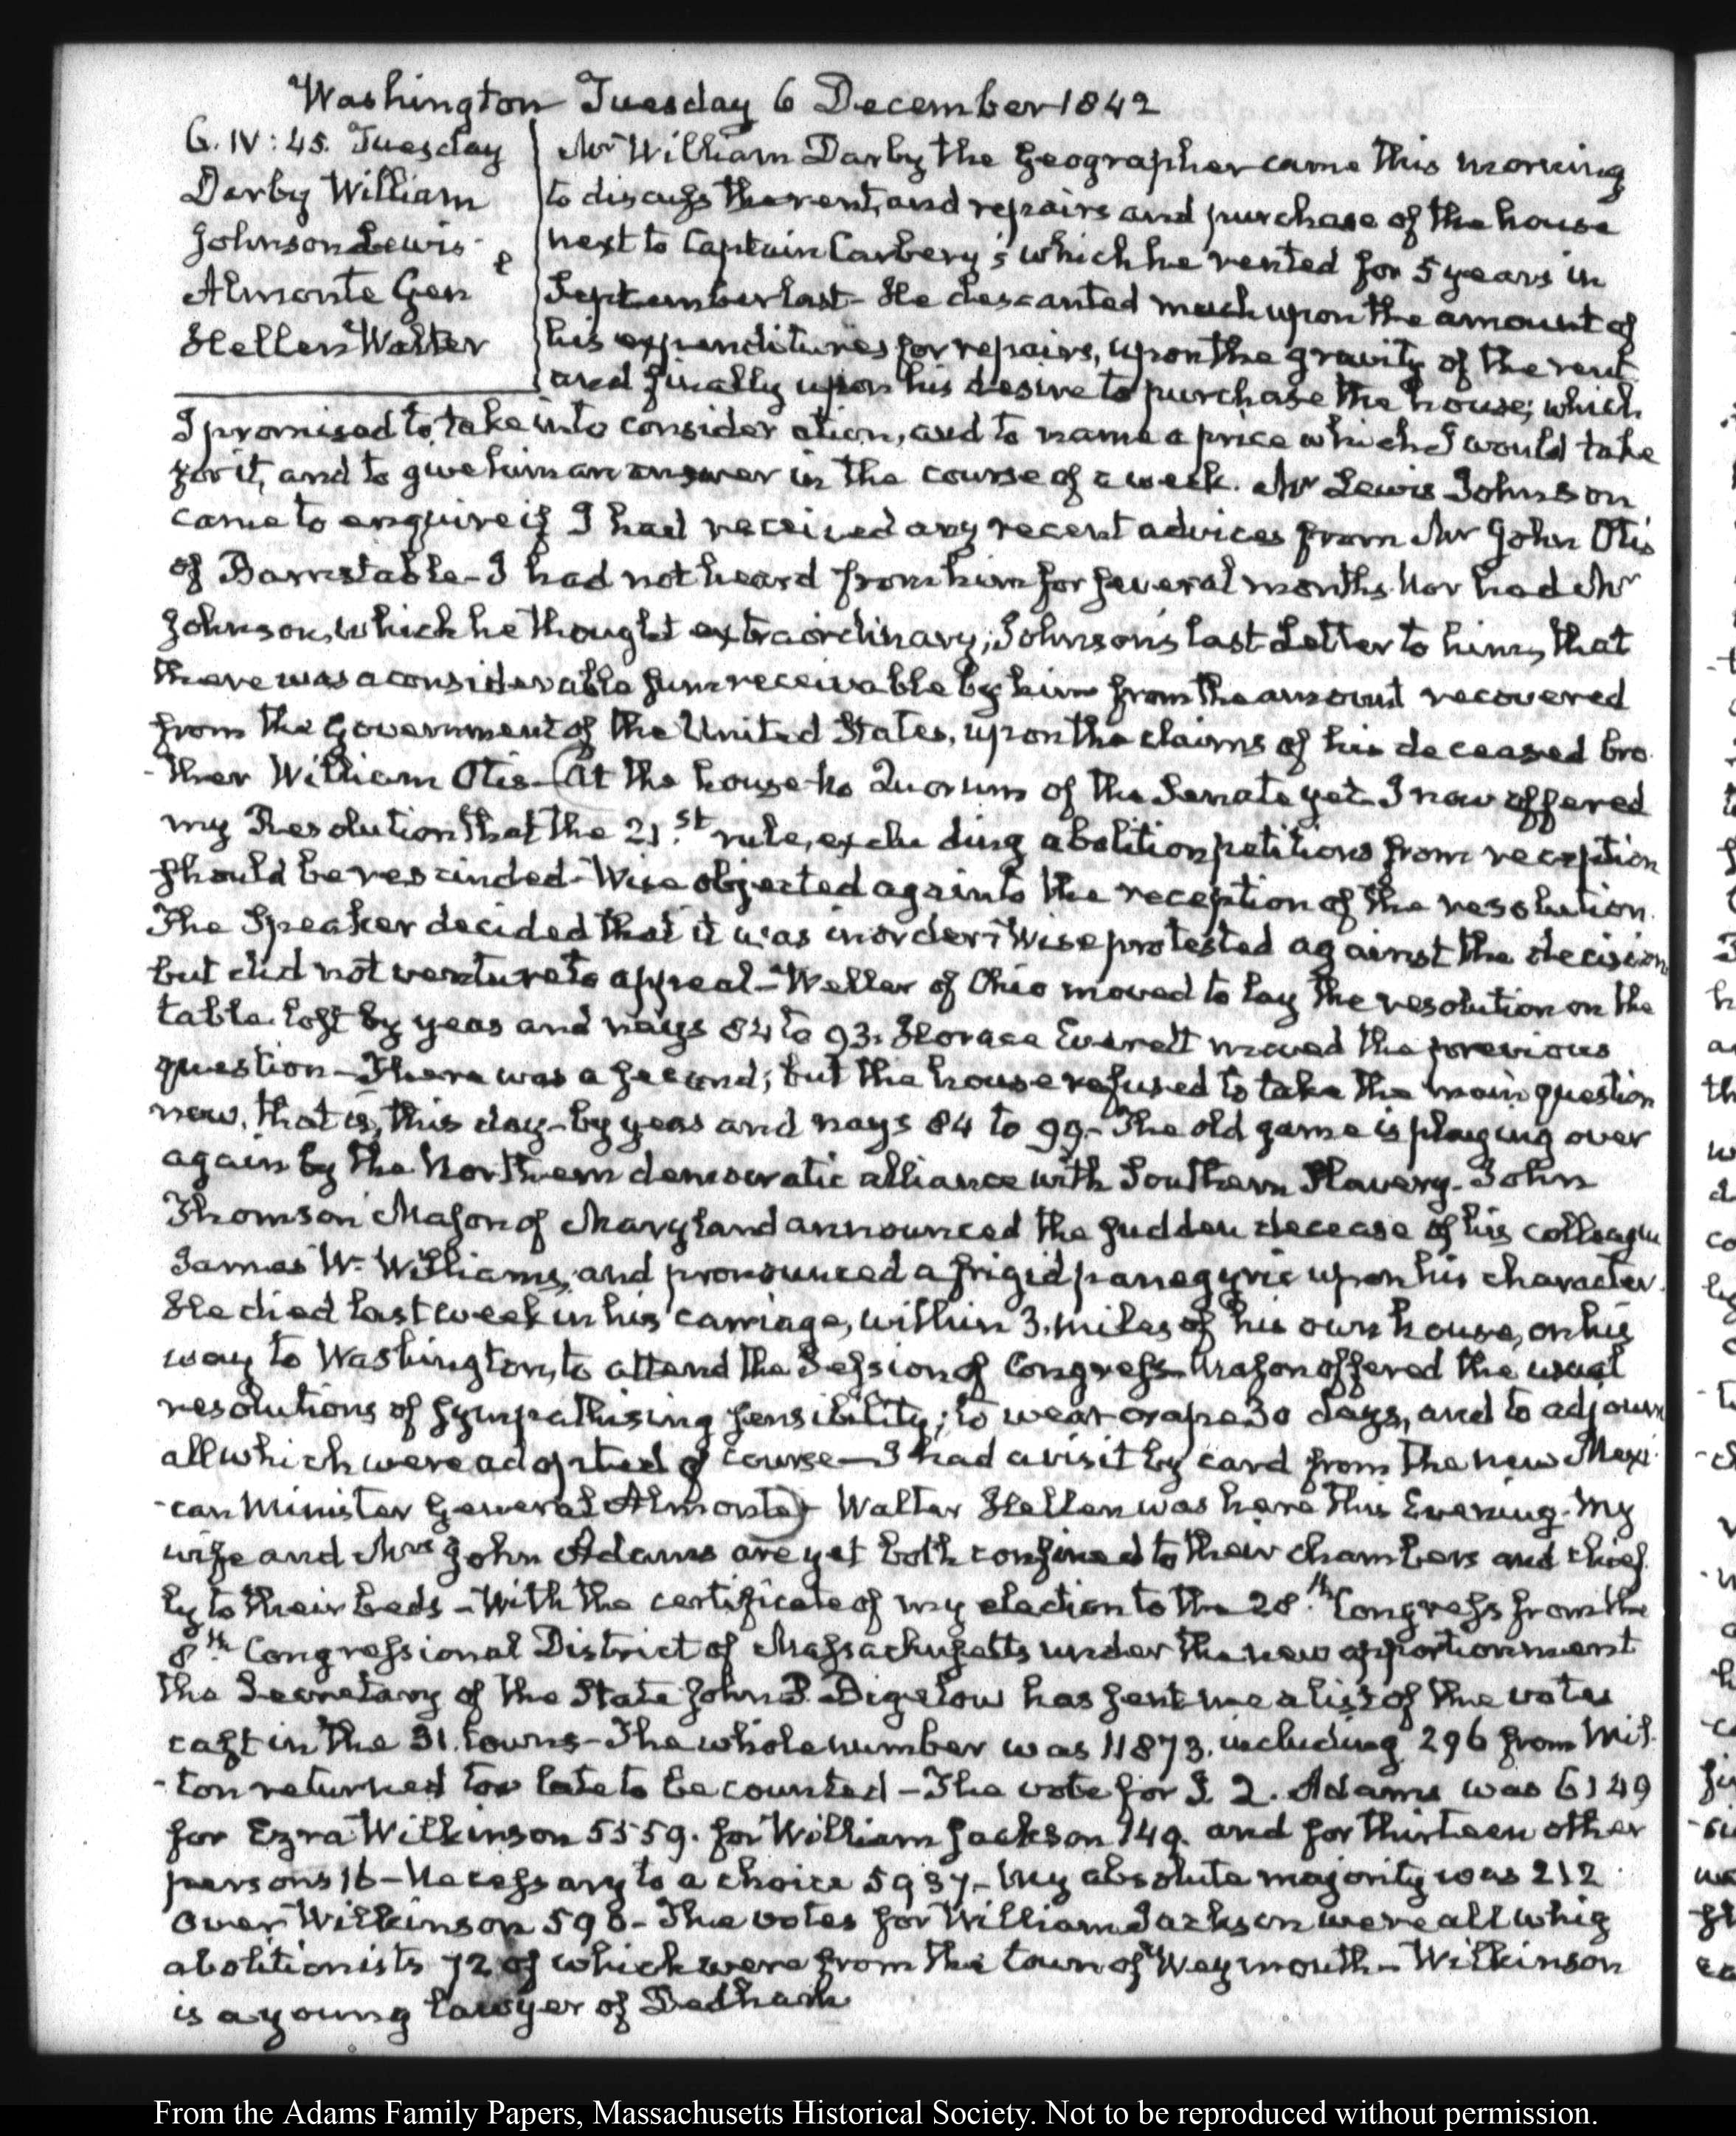 Washington Tuesday 6 December 1842
6. IV: 45. Tuesday
Darby William
Johnson Lewis
Almonte Gen l
Hellen Walter
Mr William Darby the Geographer came this morning
to discuss the rent, and repairs and purchase of the house
next to Captain Carbery's which he rented for 5 years in
September last - He descanted much upon the amount of
his expenditures for repairs, upon the gravity of the rent
and finally upon his desire to purchase the house; which
I promised to take into consideration, and to name a price which I would take
for it, and to give him an answer in the course of a week. Mr Lewis Johnson
came to enquire if I had received any recent advices from Mr John Otis
of Barnstable - I had not heard from him for several months. Nor had Mr
Johnson, which he thought extraordinary; Johnson's last Letter to him, that
there was a considerable sum receivable by him from the amount recovered
from the Government of the United States, upon the claims of his deceased bro
-ther William Otis - (At the house no Quorum of the Senate yet - I now offered
my Resolution that the 21.st rule, excluding abolition petitions from reception
should be rescinded - Wise objected again to the reception of the resolution.
The Speaker decided that it was in order - Wise protested against the decision
but did not venture to appeal - Weller of Ohio moved to lay the resolution on the
table. lost by yeas and nays 84 to 93. Horace Everett moved the previous
question - There was a second; but the house refused to take the main question
now, that is, this day - by yeas and nays 84 to 99 - The old game is playing over
again by the Northern democratic alliance with Southern Slavery - John
Thomson Mason of Maryland announced the sudden decease of his colleague
James W. Williams, and pronounced a frigid panegyric upon his character.
He died last week in his carriage, within 3. miles of his own house, on his
way to Washington, to attend the Session of Congress - Mason offered the usual
resolutions of sympathising sensibility; to wear crape 30 days, and to adjourn
all which were adopted of course - I had a visit by card from the new Mexi-
-can Minister General Almonte) - Walter Hellen was here this Evening - My
wife and Mrs John Adams are yet both confined to their chambers and chief
ly to their beds - With the certificate of my election to the 28.th Congress from the
8.th Congressional District of Massachusetts under the new apportionment
the Secretary of the State John P. Bigelow has sent me a list of the votes
cast in the 31. towns - The whole number was 11873. including 296 from Mil-
-ton returned too late to be counted - The vote for J. Q. Adams was 6149
for Ezra Wilkinson 5559. for William Jackson 149. and for thirteen other
persons 16 - Necessary to a choice 5937 - My absolute majority was 212
over Wilkinson 590 - The votes for William Jackson were all whig
abolitionists 72 of which were from the town of Weymouth - Wilkinson
is a young lawyer of Dedham
From the Adams Family Papers, Massachusetts Historical Society. Not to be reproduced without permission.